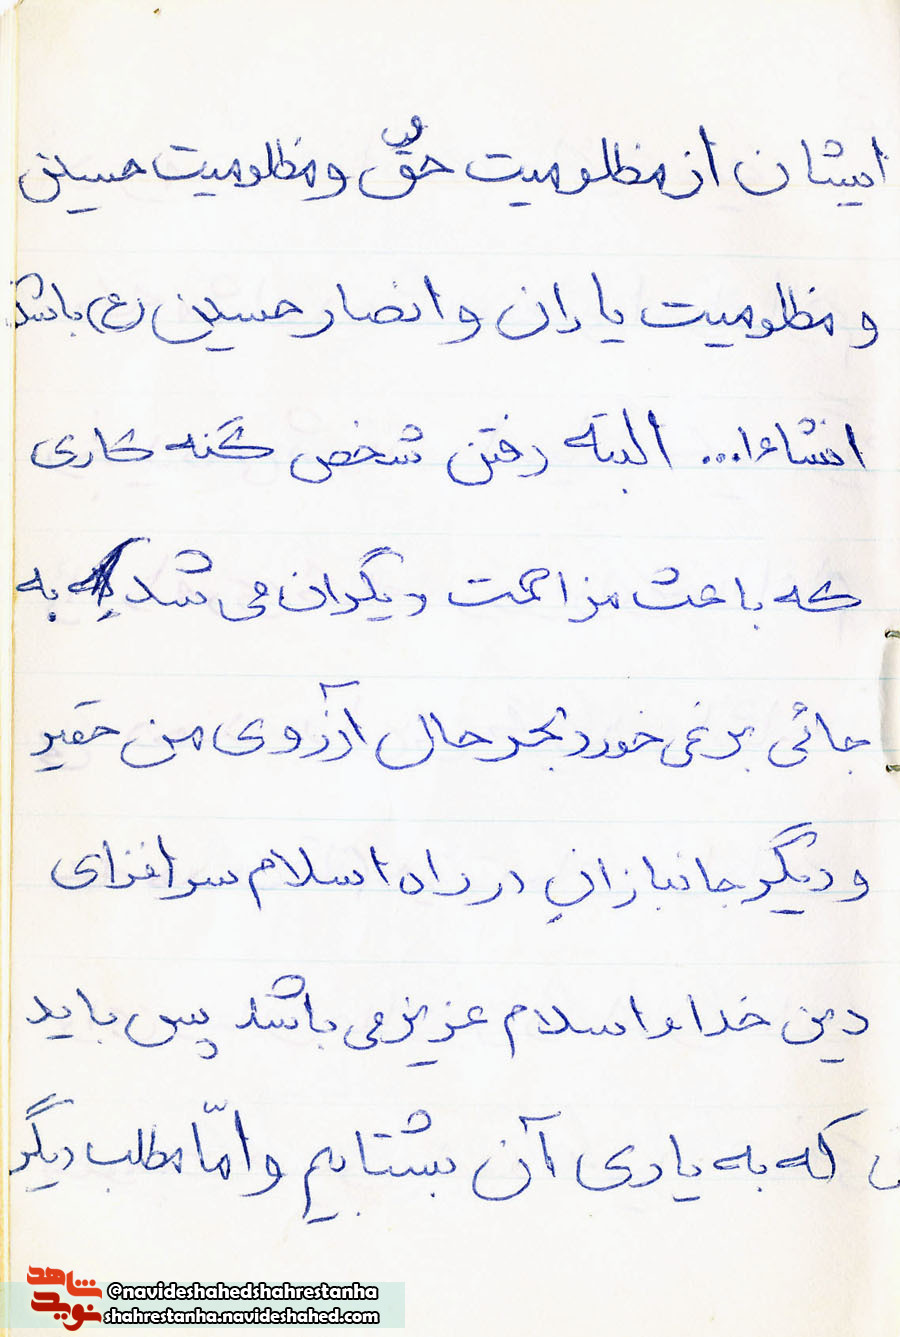 ایشان از مظلومیت حقّ و مظلومیت حسین
و مظلومیت یاران و انصار حسین (ع) باشد
انشاءا... البته رفتن شخص گنه کاری
که باعث مزاحمت دیگران می شد به
جائی برنمی خورد بحر حال آرزوی من حقیر
و دیگر جانبازانِ در راه اسلام سرافرازی
دین خدا و اسلام عزیز می باشد پس باید
که به یاری آن بشتابیم و امّا مطلب دیگر
شاهد
نوید
@navideshahedshahrestanha
shahrestanha.navideshahed.com